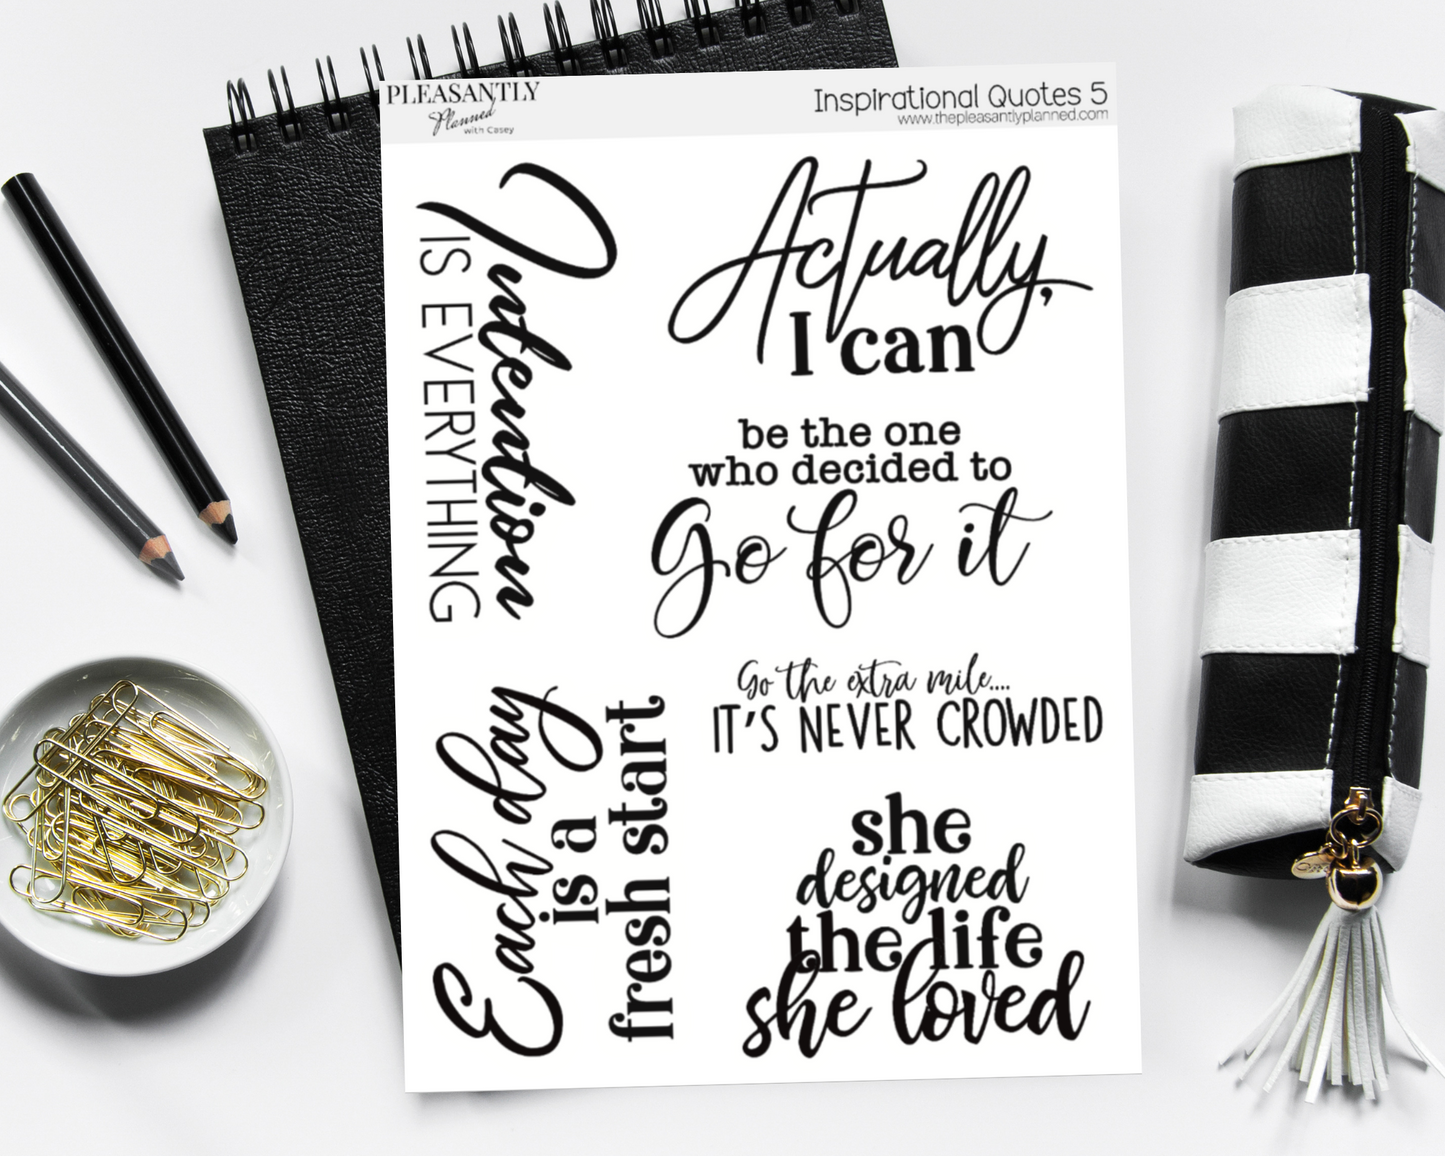 PLEASANTLY
Planned
with Casey
Inspirational Quotes 5
www.thepleasantlyplanned.com
Intention
IS EVERYTHING
Actually,
I can
be the one
who decided to
go for it
Go the extra mile....
IT'S NEVER CROWDED
Each day
is a
fresh start
she
designed
the life
she loved